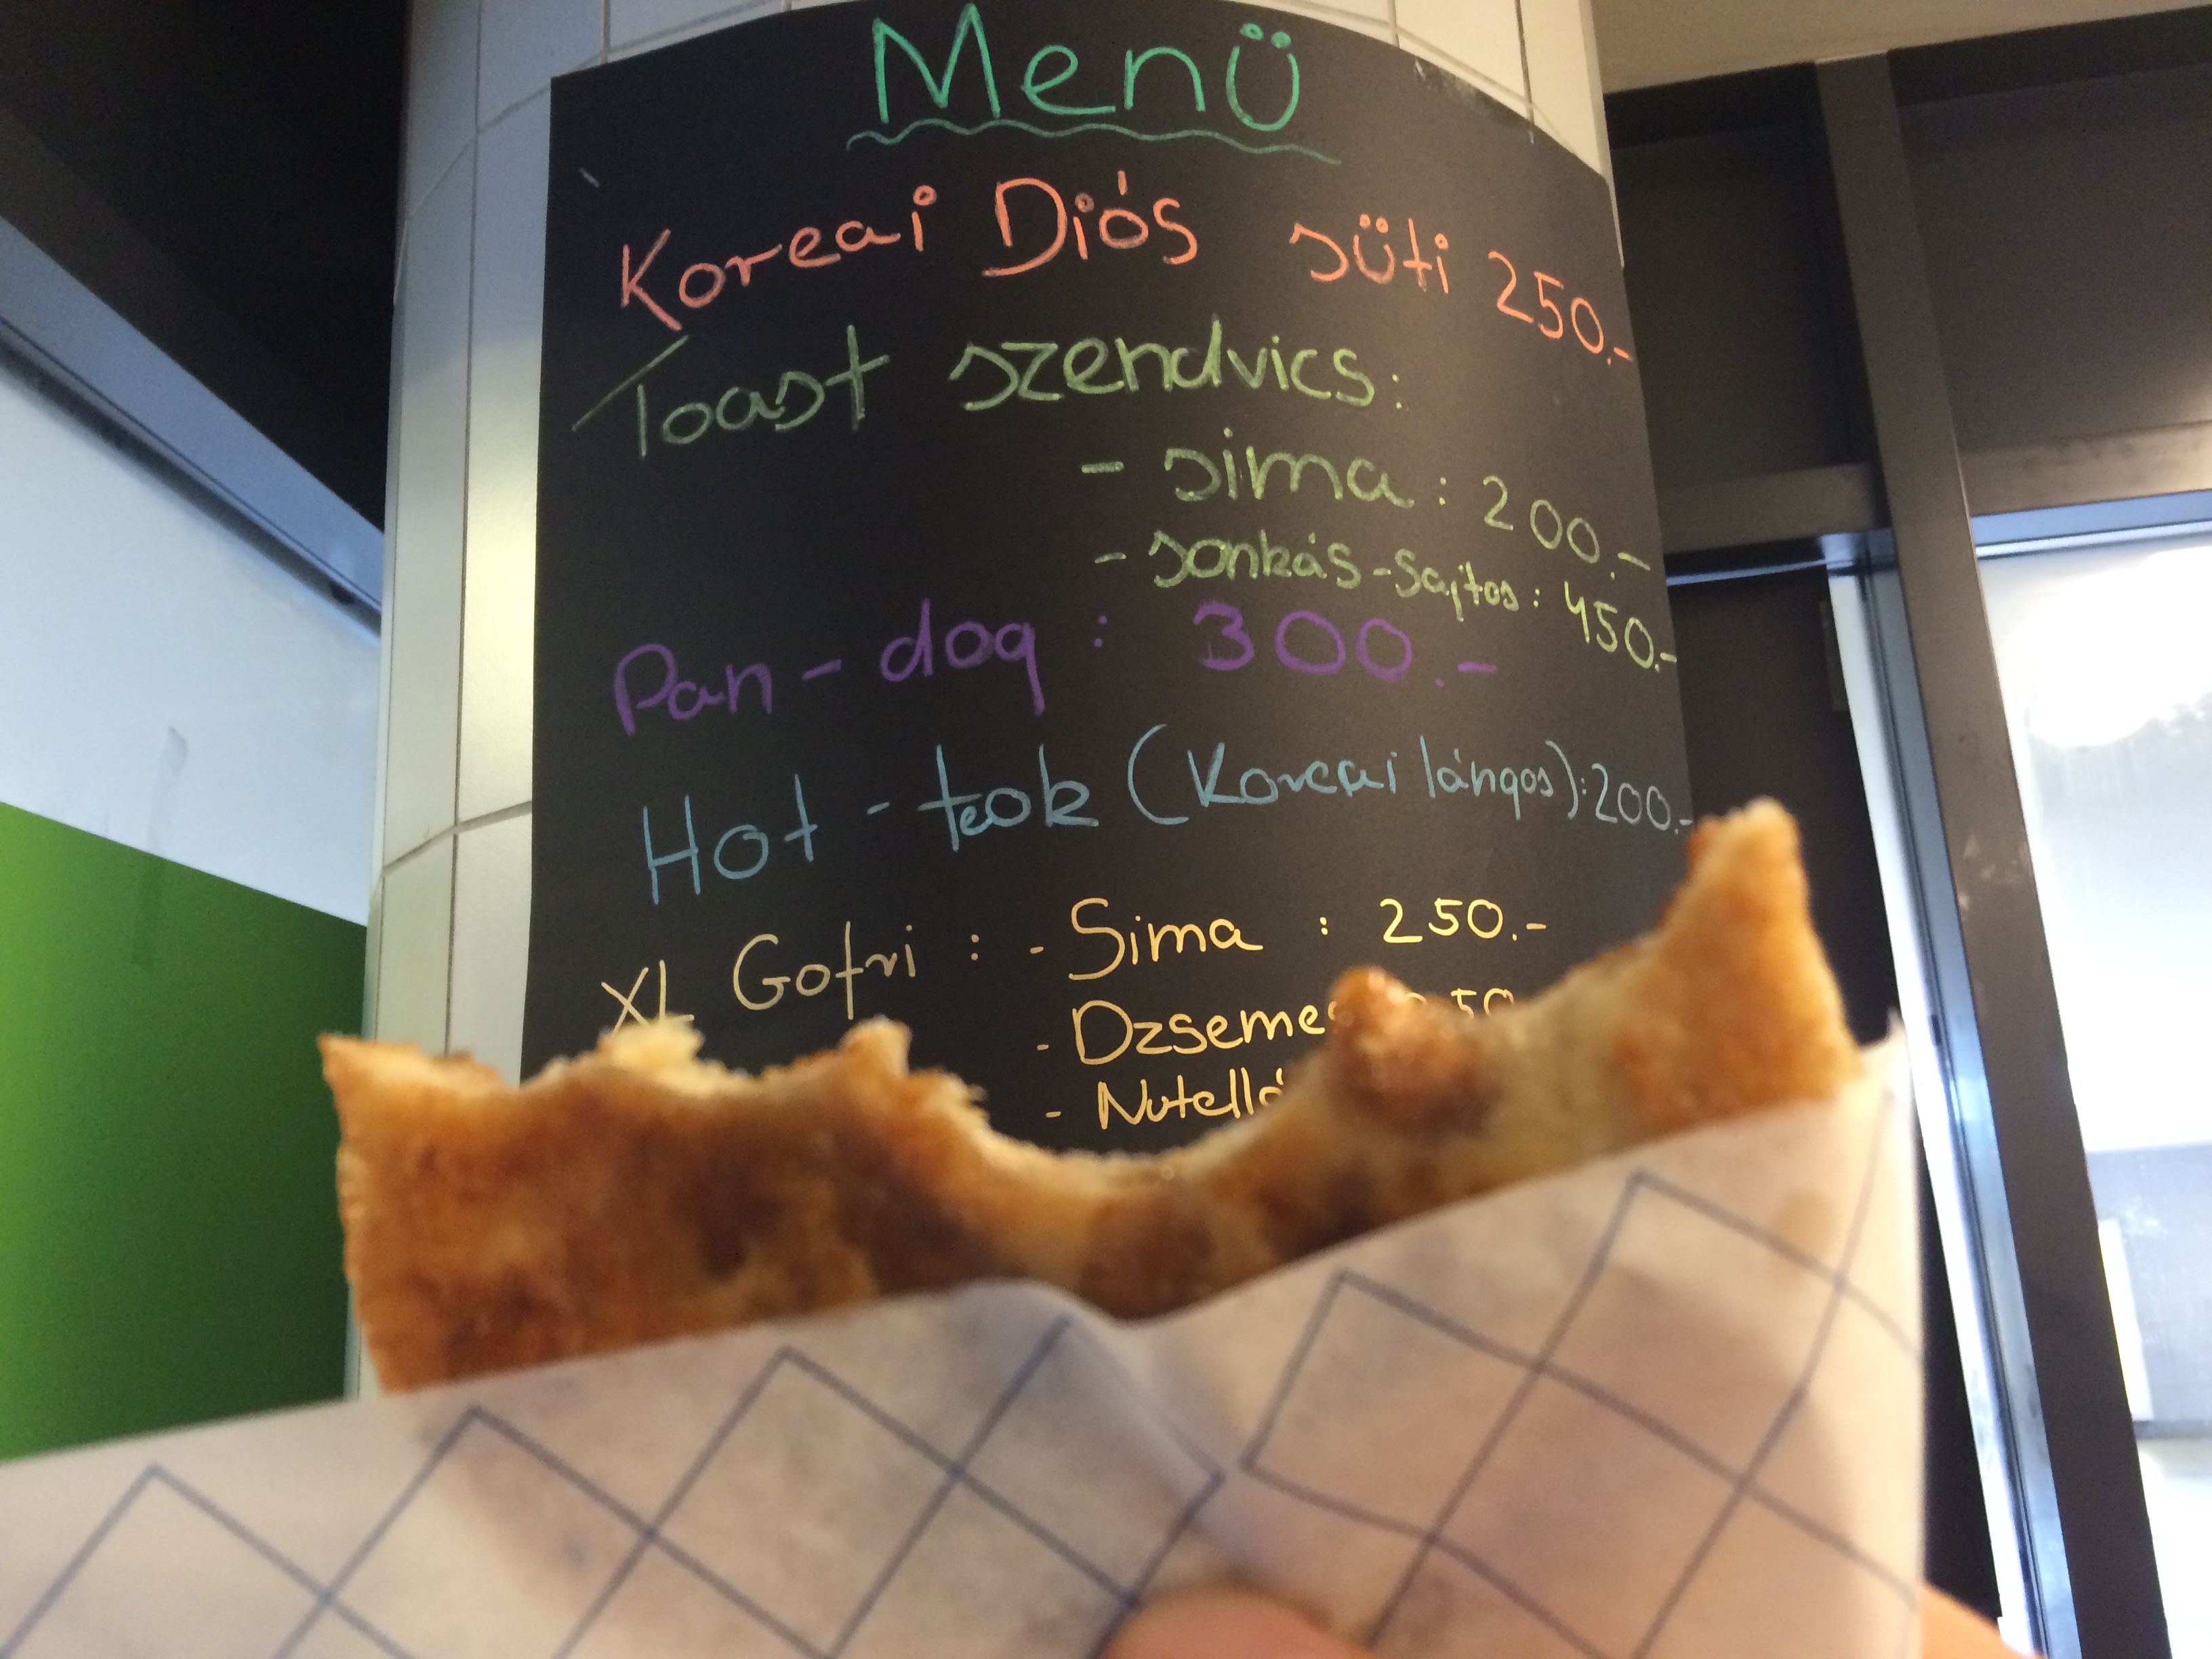 Menü
Koreai Diós süti 250.-
Toast szendvics:
- sima: 200.-
- sonkás-Sajtos: 450.-
Pan-dog: 300.-
Hot-teok (Koreai lángos):200.-
XL Gofri: - Sima : 250.-
- Dzsemes 50
- Nutellá